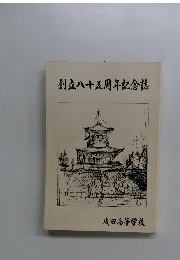 創立八十五周年記念誌
成田高等学校